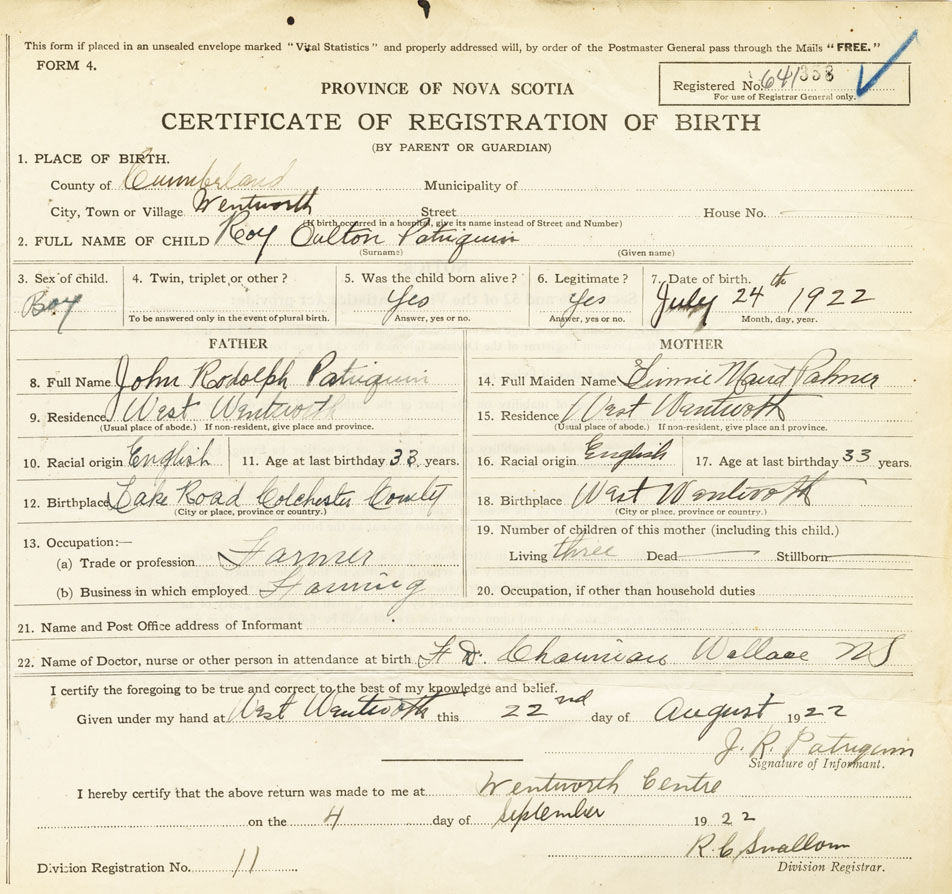 This form if placed in an unsealed envelope marked "Vital Statistics" and properly addressed will, by order of the Postmaster General pass through the Mails "FREE."
FORM 4.
Registered No. 641358
For use of Registrar General only.
PROVINCE OF NOVA SCOTIA
CERTIFICATE OF REGISTRATION OF BIRTH
(BY PARENT OR GUARDIAN)
1. PLACE OF BIRTH.
County of Cumberland Municipality of
City, Town or Village Wentworth Street House No.
(If birth occurred in a hospital, give its name instead of Street and Number)
2. FULL NAME OF CHILD Roy Oulton Patriquin
(Surname) (Given name)
3. Sex of child. 4. Twin, triplet or other? 5. Was the child born alive? 6. Legitimate? 7. Date of birth.
Boy Yes Yes July 24th 1922
To be answered only in the event of plural birth. Answer, yes or no. Answer, yes or no. Month, day, year.
FATHER MOTHER
8. Full Name John Rodolph Patriquin 14. Full Maiden Name Maud Palmer
9. Residence West Wentworth 15. Residence West Wentworth
(Usual place of abode.) If non-resident, give place and province. (Usual place of abode.) If non-resident, give place and province.
10. Racial origin English 11. Age at last birthday 33 years. 16. Racial origin English 17. Age at last birthday 33 years.
12. Birthplace Lake Road Colchester County 18. Birthplace West Wentworth
(City or place, province or country.) (City or place, province or country.)
13. Occupation:— 19. Number of children of this mother (including this child.)
(a) Trade or profession Farmer Living three Dead Stillborn
(b) Business in which employed Farming 20. Occupation, if other than household duties
21. Name and Post Office address of Informant
22. Name of Doctor, nurse or other person in attendance at birth Wallace NS
I certify the foregoing to be true and correct to the best of my knowledge and belief.
Given under my hand at West Wentworth this 22nd day of August 1922
J. R. Patriquin
Signature of Informant.
I hereby certify that the above return was made to me at Wentworth Centre
on the 4 day of September 1922
R. C. Swallow
Division Registration No. 11 Division Registrar.